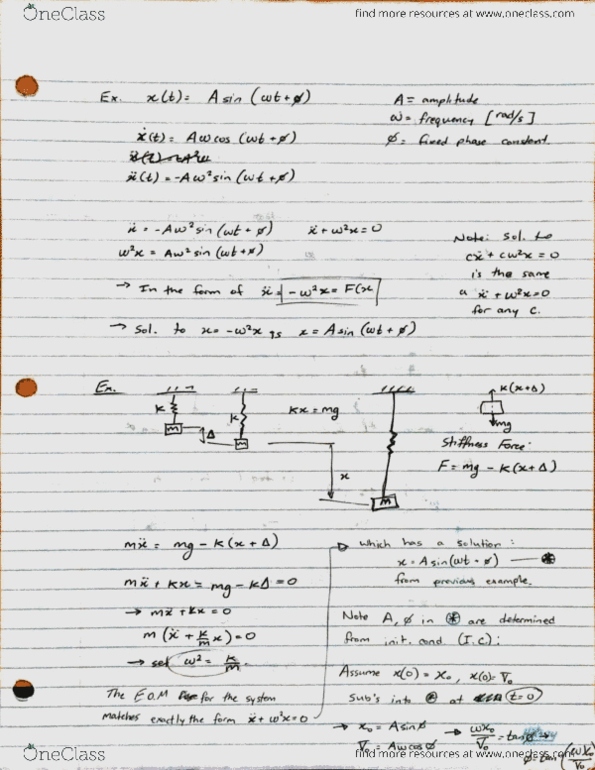 OneClass
find more resources at www.oneclass.com
Ex. x(t) = A sin (ωt + ø)
A = amplitude
ω = frequency [rad/s]
ẋ(t) = Aω cos (ωt + ø)
ø = fixed phase constant.
ẍ(t) = -Aω² sin (ωt + ø)
ẍ = -Aω² sin (ωt + ø)
ẍ + ω²x = 0
ω²x = Aω² sin (ωt + ø)
Note: Sol. to
cẍ + cω²x = 0
is the same
a ẍ + ω²x = 0
for any c.
→ In the form of ẍ = -ω²x = F(x
→ Sol. to x = -ω²x is x = A sin (ωt + ø)
Ex.
K
m
Δ
K
m
Kx = mg
x
m
K(x+Δ)
mg
Stiffness Force:
F = mg - K(x + Δ)
mẍ = mg - K(x + Δ)
mẍ + Kx = mg - KΔ = 0
→ mẍ + Kx = 0
m (ẍ + K/m x) = 0
→ set ω² = K/m.
The E.O.M for the system
matches exactly the form ẍ + ω²x = 0
which has a solution:
x = A sin(ωt - ø) — ⊛
from previous example.
Note A, ø in ⊛ are determined
from init. cond (I.C.):
Assume x(0) = x₀, ẋ(0) = V₀
Sub's into ⊛ at t=0
→ x₀ = A sin ø → ωx₀/V₀ = tan ø →
V₀ = Aω cos ø
ø = tan⁻¹(ωx₀/V₀)
OneClass
find more resources at www.oneclass.com